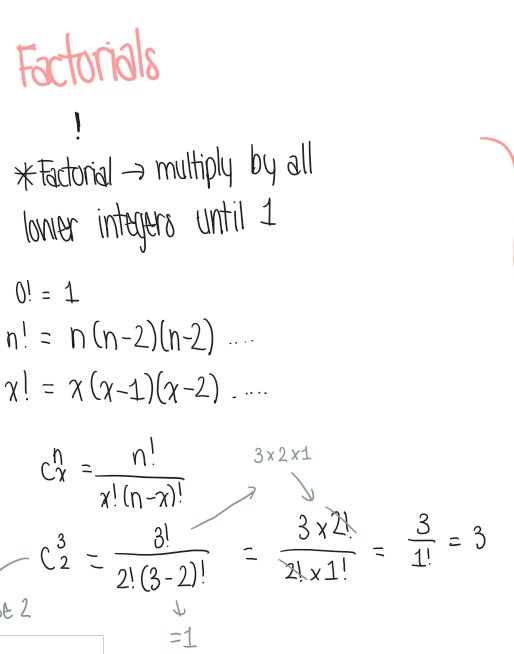 Factorials
!
*Factorial → multiply by all
lower integers until 1
0! = 1
n! = n(n-2)(n-2) ....
x! = x(x-1)(x-2) .....
C^n_x = n! / x!(n-x)!
3x2x1
C^3_2 = 3! / 2!(3-2)! = 3x2! / 2!x1! = 3 / 1! = 3
2
=1